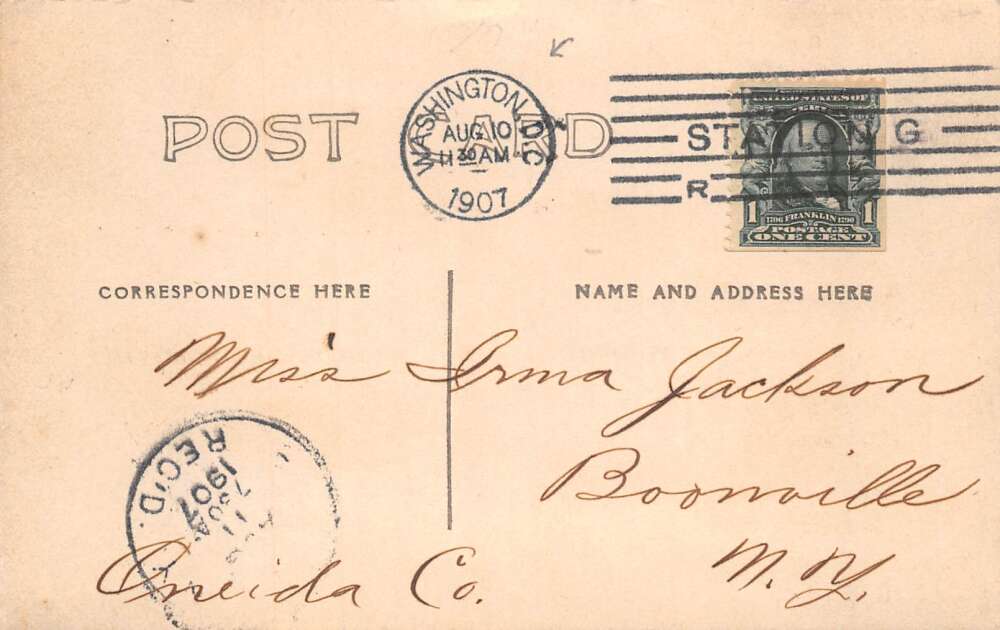 POST CARD
WASHINGTON, D.C.
AUG 10
11 30 AM
1907
STATION G
R
UNITED STATES OF
1 1
1706 FRANKLIN 1790
POSTAGE
ONE CENT
CORRESPONDENCE HERE
NAME AND ADDRESS HERE
Miss Irma Jackson
Boonville
Oneida Co. N.Y.
REC'D.
1907
AUG
11